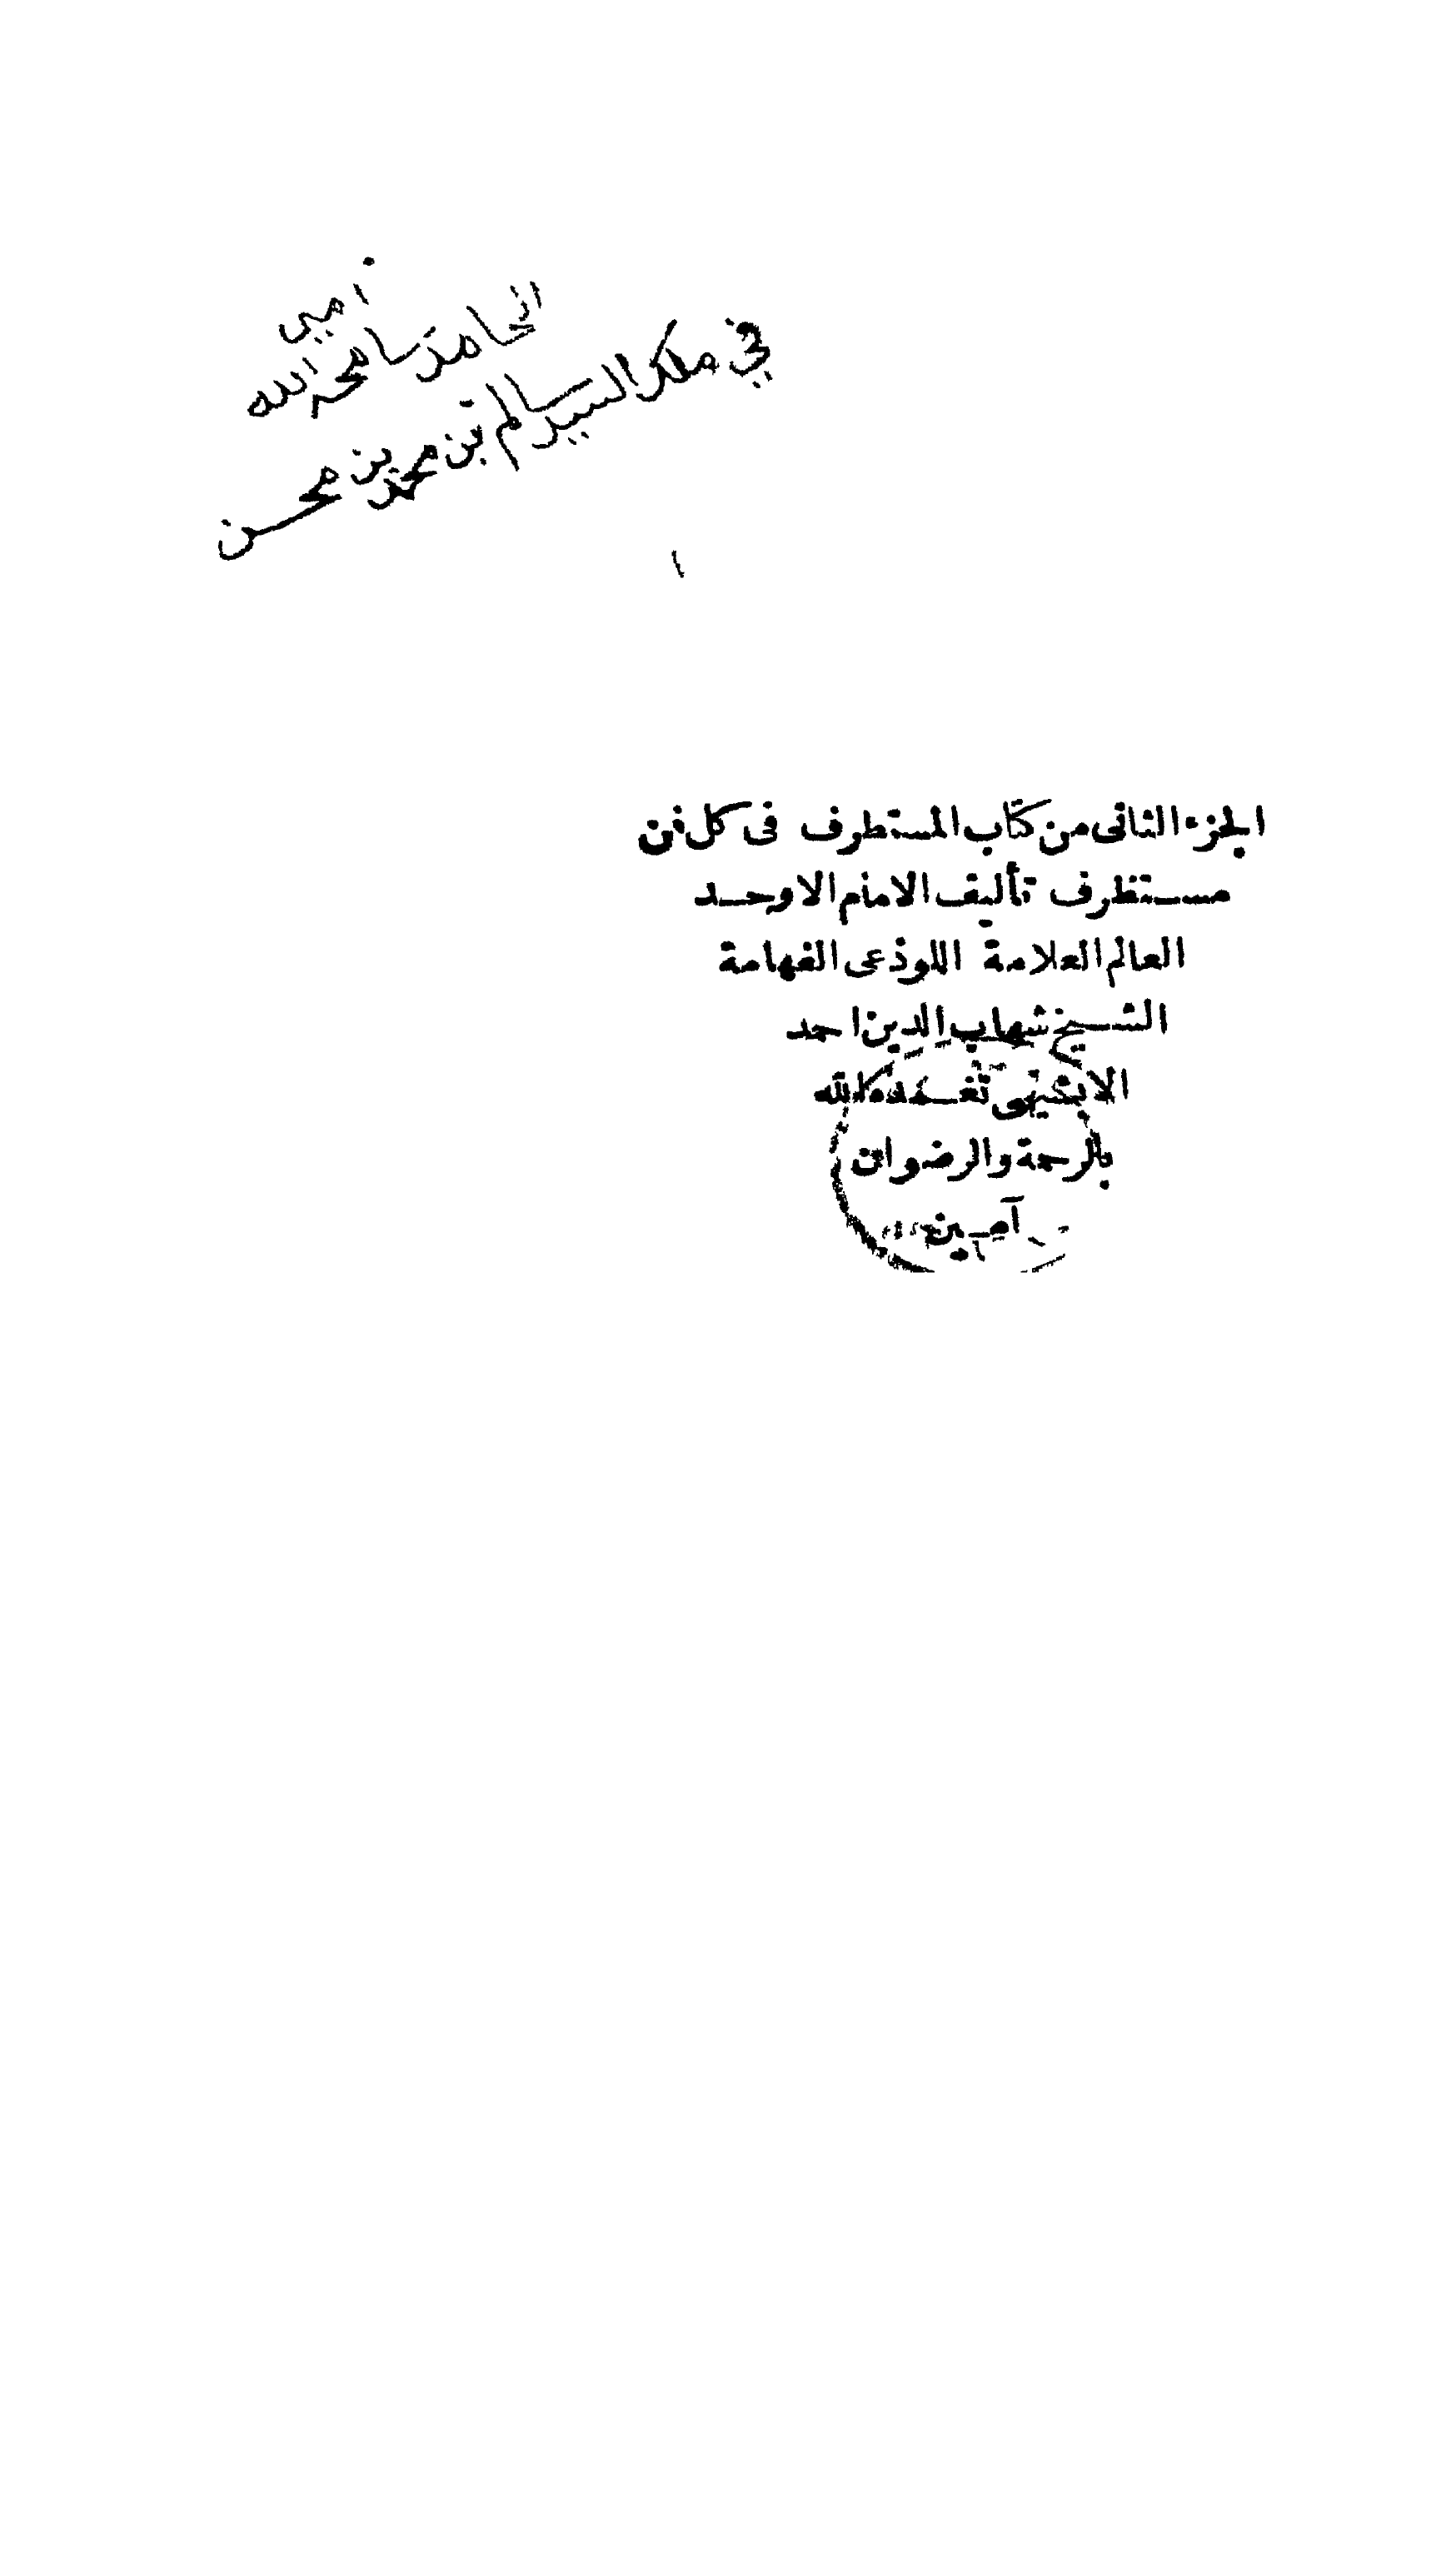 في ملك السيد سالم بن محمد بن محسن
الحامد سامحه الله
امين
الجزء الثانى من كتاب المستطرف فى كل فن
مستظرف تأليف الامام الاوحد
العالم العلامة اللوذعى الفهامة
الشيخ شهاب الدين احمد
الابشيهى تغمده الله
بالرحمة والرضوان
آمين